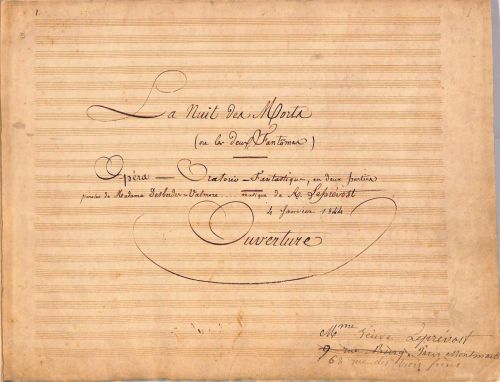 1.
La Nuit des Morts
(ou les deux Fantômes)
Opéra — Oratorio — Fantastique, en deux parties
paroles de Madame Desbordes-Valmore musique de A. Leprévost
4 Janvier 1844
Ouverture
Mme Veuve Leprévost
9 rue Paris Montmartre
6 rue des trois frères